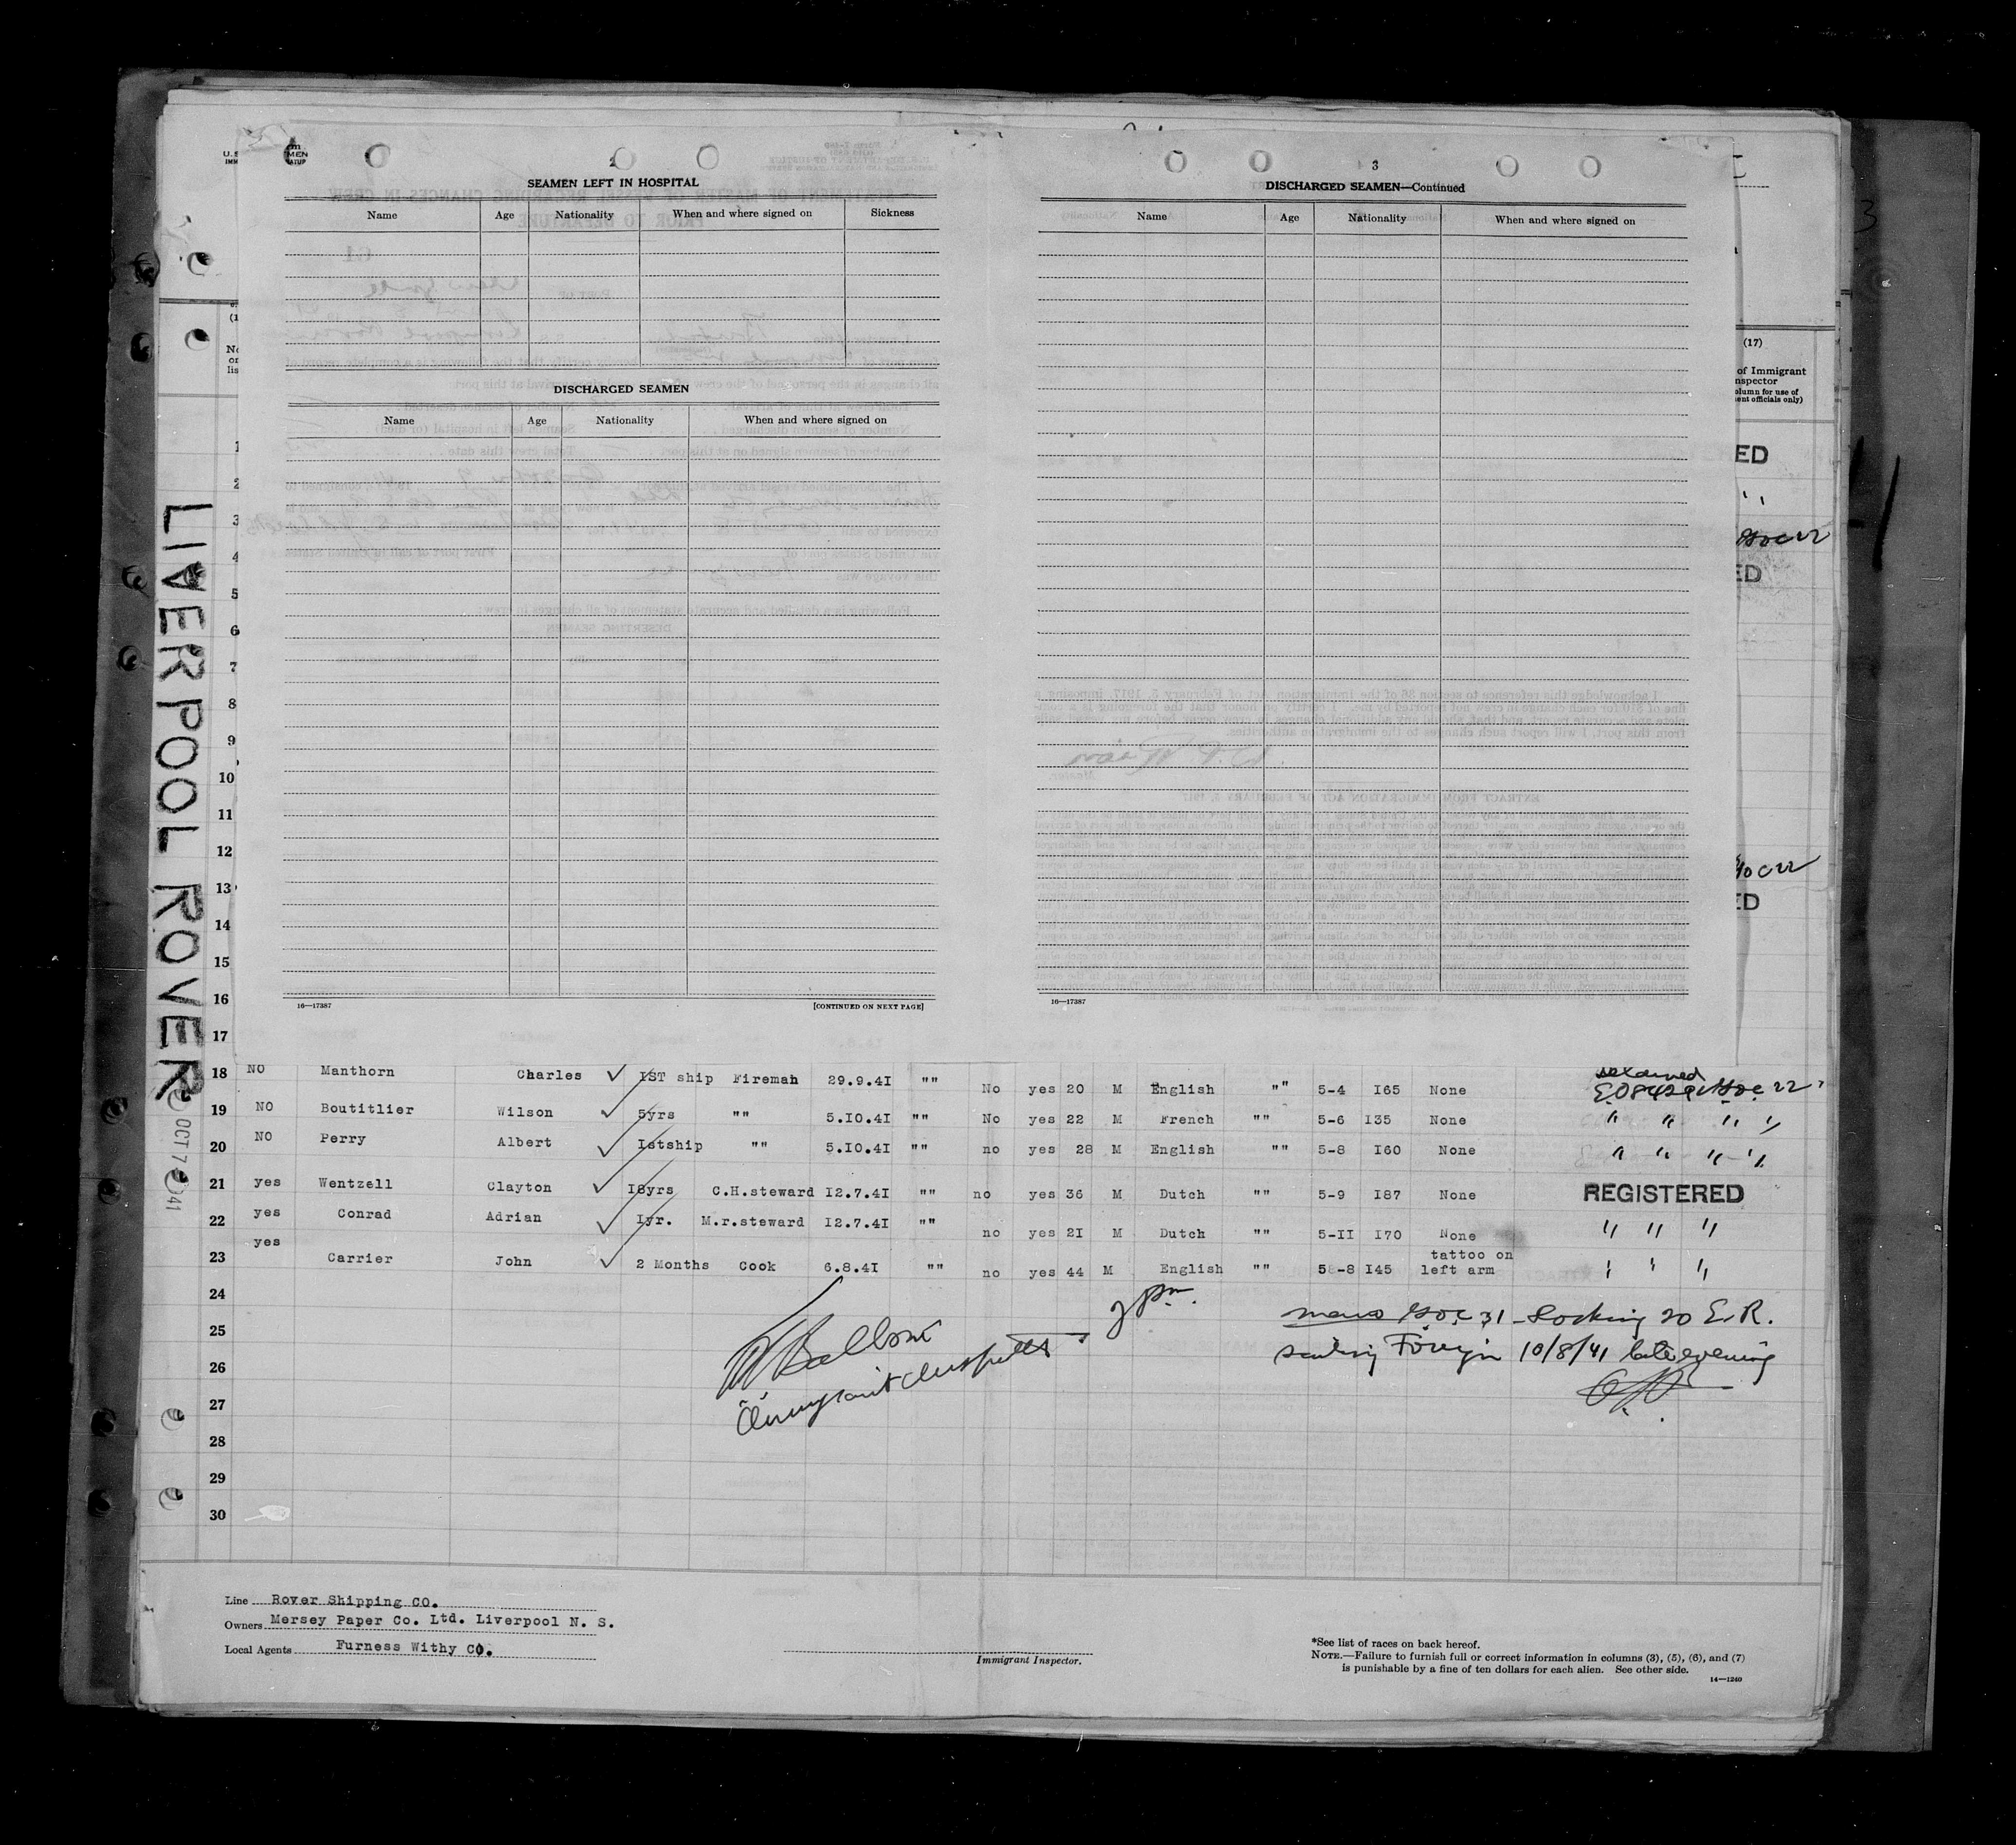 2
SEAMEN LEFT IN HOSPITAL
Name Age Nationality When and where signed on Sickness
DISCHARGED SEAMEN
Name Age Nationality When and where signed on
16—17387 [CONTINUED ON NEXT PAGE]
3
DISCHARGED SEAMEN—Continued
Name Age Nationality When and where signed on
16—17387
(17)
of Immigrant
nspector
olumn for use of
ent officials only)
ED
ED
ED
LIVERPOOL ROVER
OCT 7
1
2
3
4
5
6
7
8
9
10
11
12
13
14
15
16
17
18 NO Manthorn Charles IST ship Fireman 29.9.4I "" No yes 20 M English "" 5-4 I65 None
19 NO Boutitlier Wilson 5yrs "" 5.I0.4I "" No yes 22 M French "" 5-6 I35 None " " " "
20 NO Perry Albert Istship "" 5.I0.4I "" no yes 28 M English "" 5-8 I60 None " " " "
21 yes Wentzell Clayton I8yrs C.H.steward I2.7.4I "" no yes 36 M Dutch "" 5-9 I87 None REGISTERED
22 yes Conrad Adrian Iyr. M.r.steward I2.7.4I "" no yes 2I M Dutch "" 5-II I70 None " " "
23 yes Carrier John 2 Months Cook 6.8.4I "" no yes 44 M English "" 5-8 I45 tattoo on left arm " " "
24
25
26
27
28
29
30
2 pm.
31 - Docking 20 E.R.
sailing Foreign 10/8/41 late evening
Line Rover Shipping CO.
Owners Mersey Paper Co. Ltd. Liverpool N. S.
Local Agents Furness Withy Co.
Immigrant Inspector.
*See list of races on back hereof.
NOTE.—Failure to furnish full or correct information in columns (3), (5), (6), and (7)
is punishable by a fine of ten dollars for each alien. See other side.
14—1240